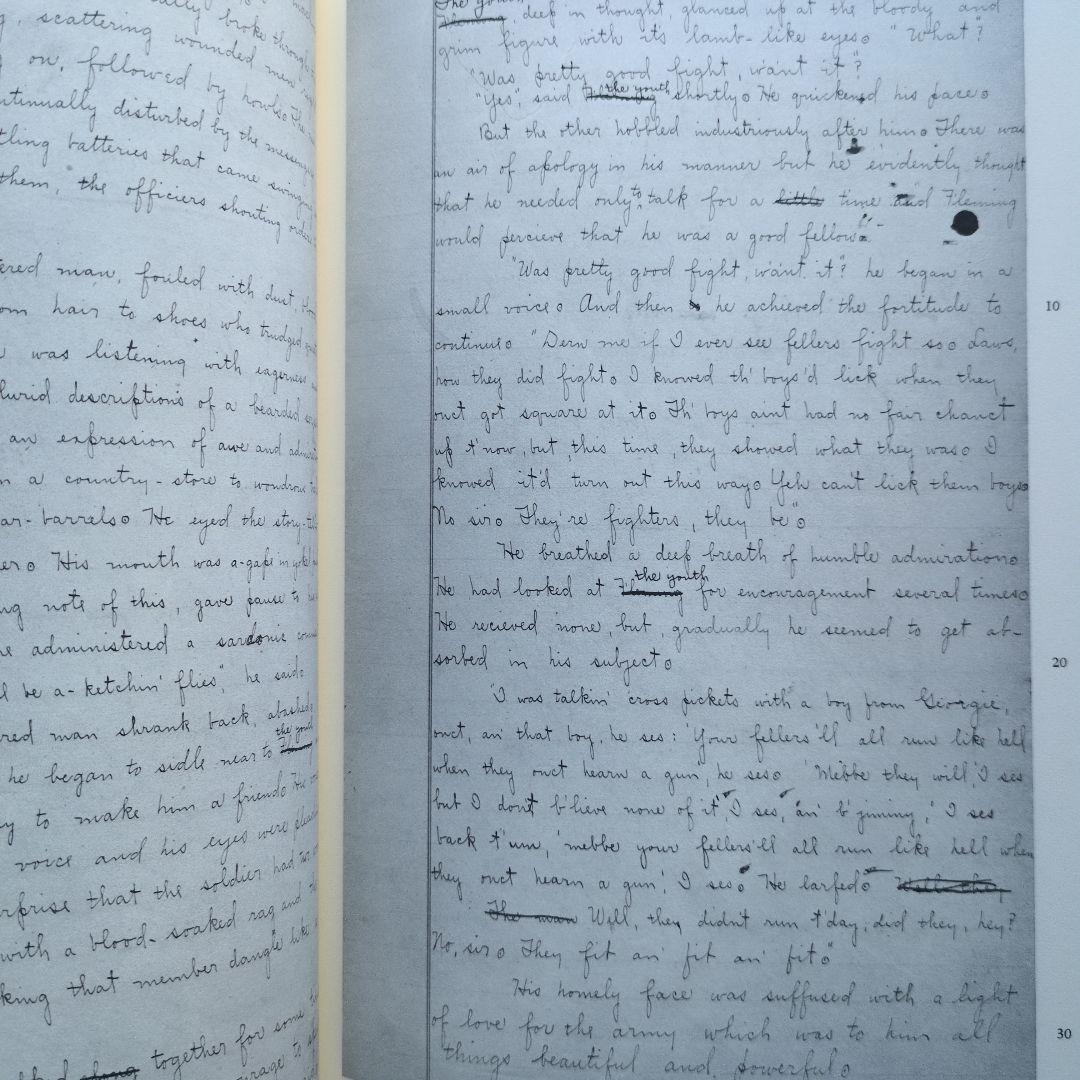 broke through
scattering wounded men
on, followed by howls. The
continually disturbed by the messengers
batteries that came swinging
them, the officers shouting orders
man, fouled with dust,
hair to shoes who trudged
was listening with eagerness
lurid descriptions of a bearded
an expression of awe and
a country-store to wondrous
barrels. He eyed the story-
His mouth was a-gape in
note of this, gave pause to
administered a sardonic
be a-ketchin' flies," he said.
man shrank back, abashed
the youth
he began to sidle near to
to make him a friend. His
voice and his eyes were
surprise that the soldier had
with a blood-soaked rag and
that member dangle like
along together for some
The youth
Fleming, deep in thought, glanced up at the bloody and
grim figure with its lamb-like eyes. "What?"
"Was pretty good fight, wa'nt it"?
the youth
"Yes", said Fleming shortly. He quickened his pace.
But the other hobbled industriously after him. There was
an air of apology in his manner but he evidently thought
to
that he needed only talk for a little time and Fleming
would percieve that he was a good fellow.
"Was pretty good fight, wa'nt it"? he began in a
small voice. And then he achieved the fortitude to
continue. "Dern me if I ever see fellers fight so. Laws,
how they did fight. I knowed th' boys'd lick when they
onct got square at it. Th' boys aint had no fair chanct
up t'now, but, this time, they showed what they was. I
knowed it'd turn out this way. Yeh can't lick them boys.
No sir. They're fighters, they be".
He breathed a deep breath of humble admiration.
the youth
He had looked at Fleming for encouragement several times.
He recieved none, but, gradually he seemed to get ab-
sorbed in his subject.
"I was talkin' cross pickets with a boy from Georgie,
onct, an' that boy, he ses: 'Your fellers'll all run like hell
when they onct hearn a gun', he ses. 'Mebbe they will,' I ses
but I don't b'lieve none of it,' I ses, 'an' b'jiminy,' I ses
back t'um, 'mebbe your fellers'll all run like hell when
they onct hearn a gun,' I ses. He larfed. Well they
The man Well, they didn't run t'day, did they, hey?
No, sir. They fit an' fit an' fit."
His homely face was suffused with a light
of love for the army which was to him all
things beautiful and powerful.
10
20
30